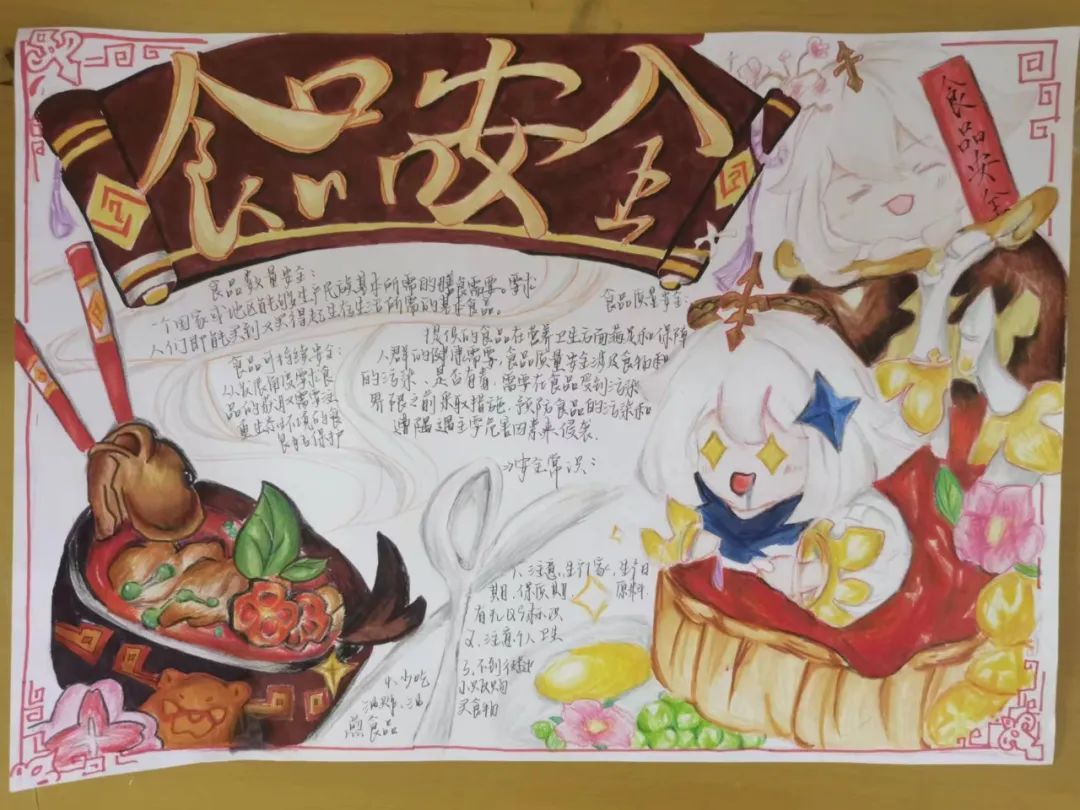 食品安全
食品安全
食品数量安全:
一个国家或地区能够生产民族基本所需的膳食需要。要求
人们即能买到又买得起生存生活所需的基本食品。
食品可持续安全:
从发展角度要求食
品的获取需要注
重生态环境的良
食品质量安全:
提供的食品在营养卫生方面满足和保障
人群的健康需要,食品质量安全涉及食物和
的污染、是否有毒,需要在食品受到污染
界限之前采取措施,预防食品的污染和
遭遇主要危害因素来侵袭.
安全常识:
1、注意生产厂家,生产日
期,保质期 原料.
有无QS标识
2、注意个人卫生
3、不到
买食物
4、少吃
油炸、油
煎食品